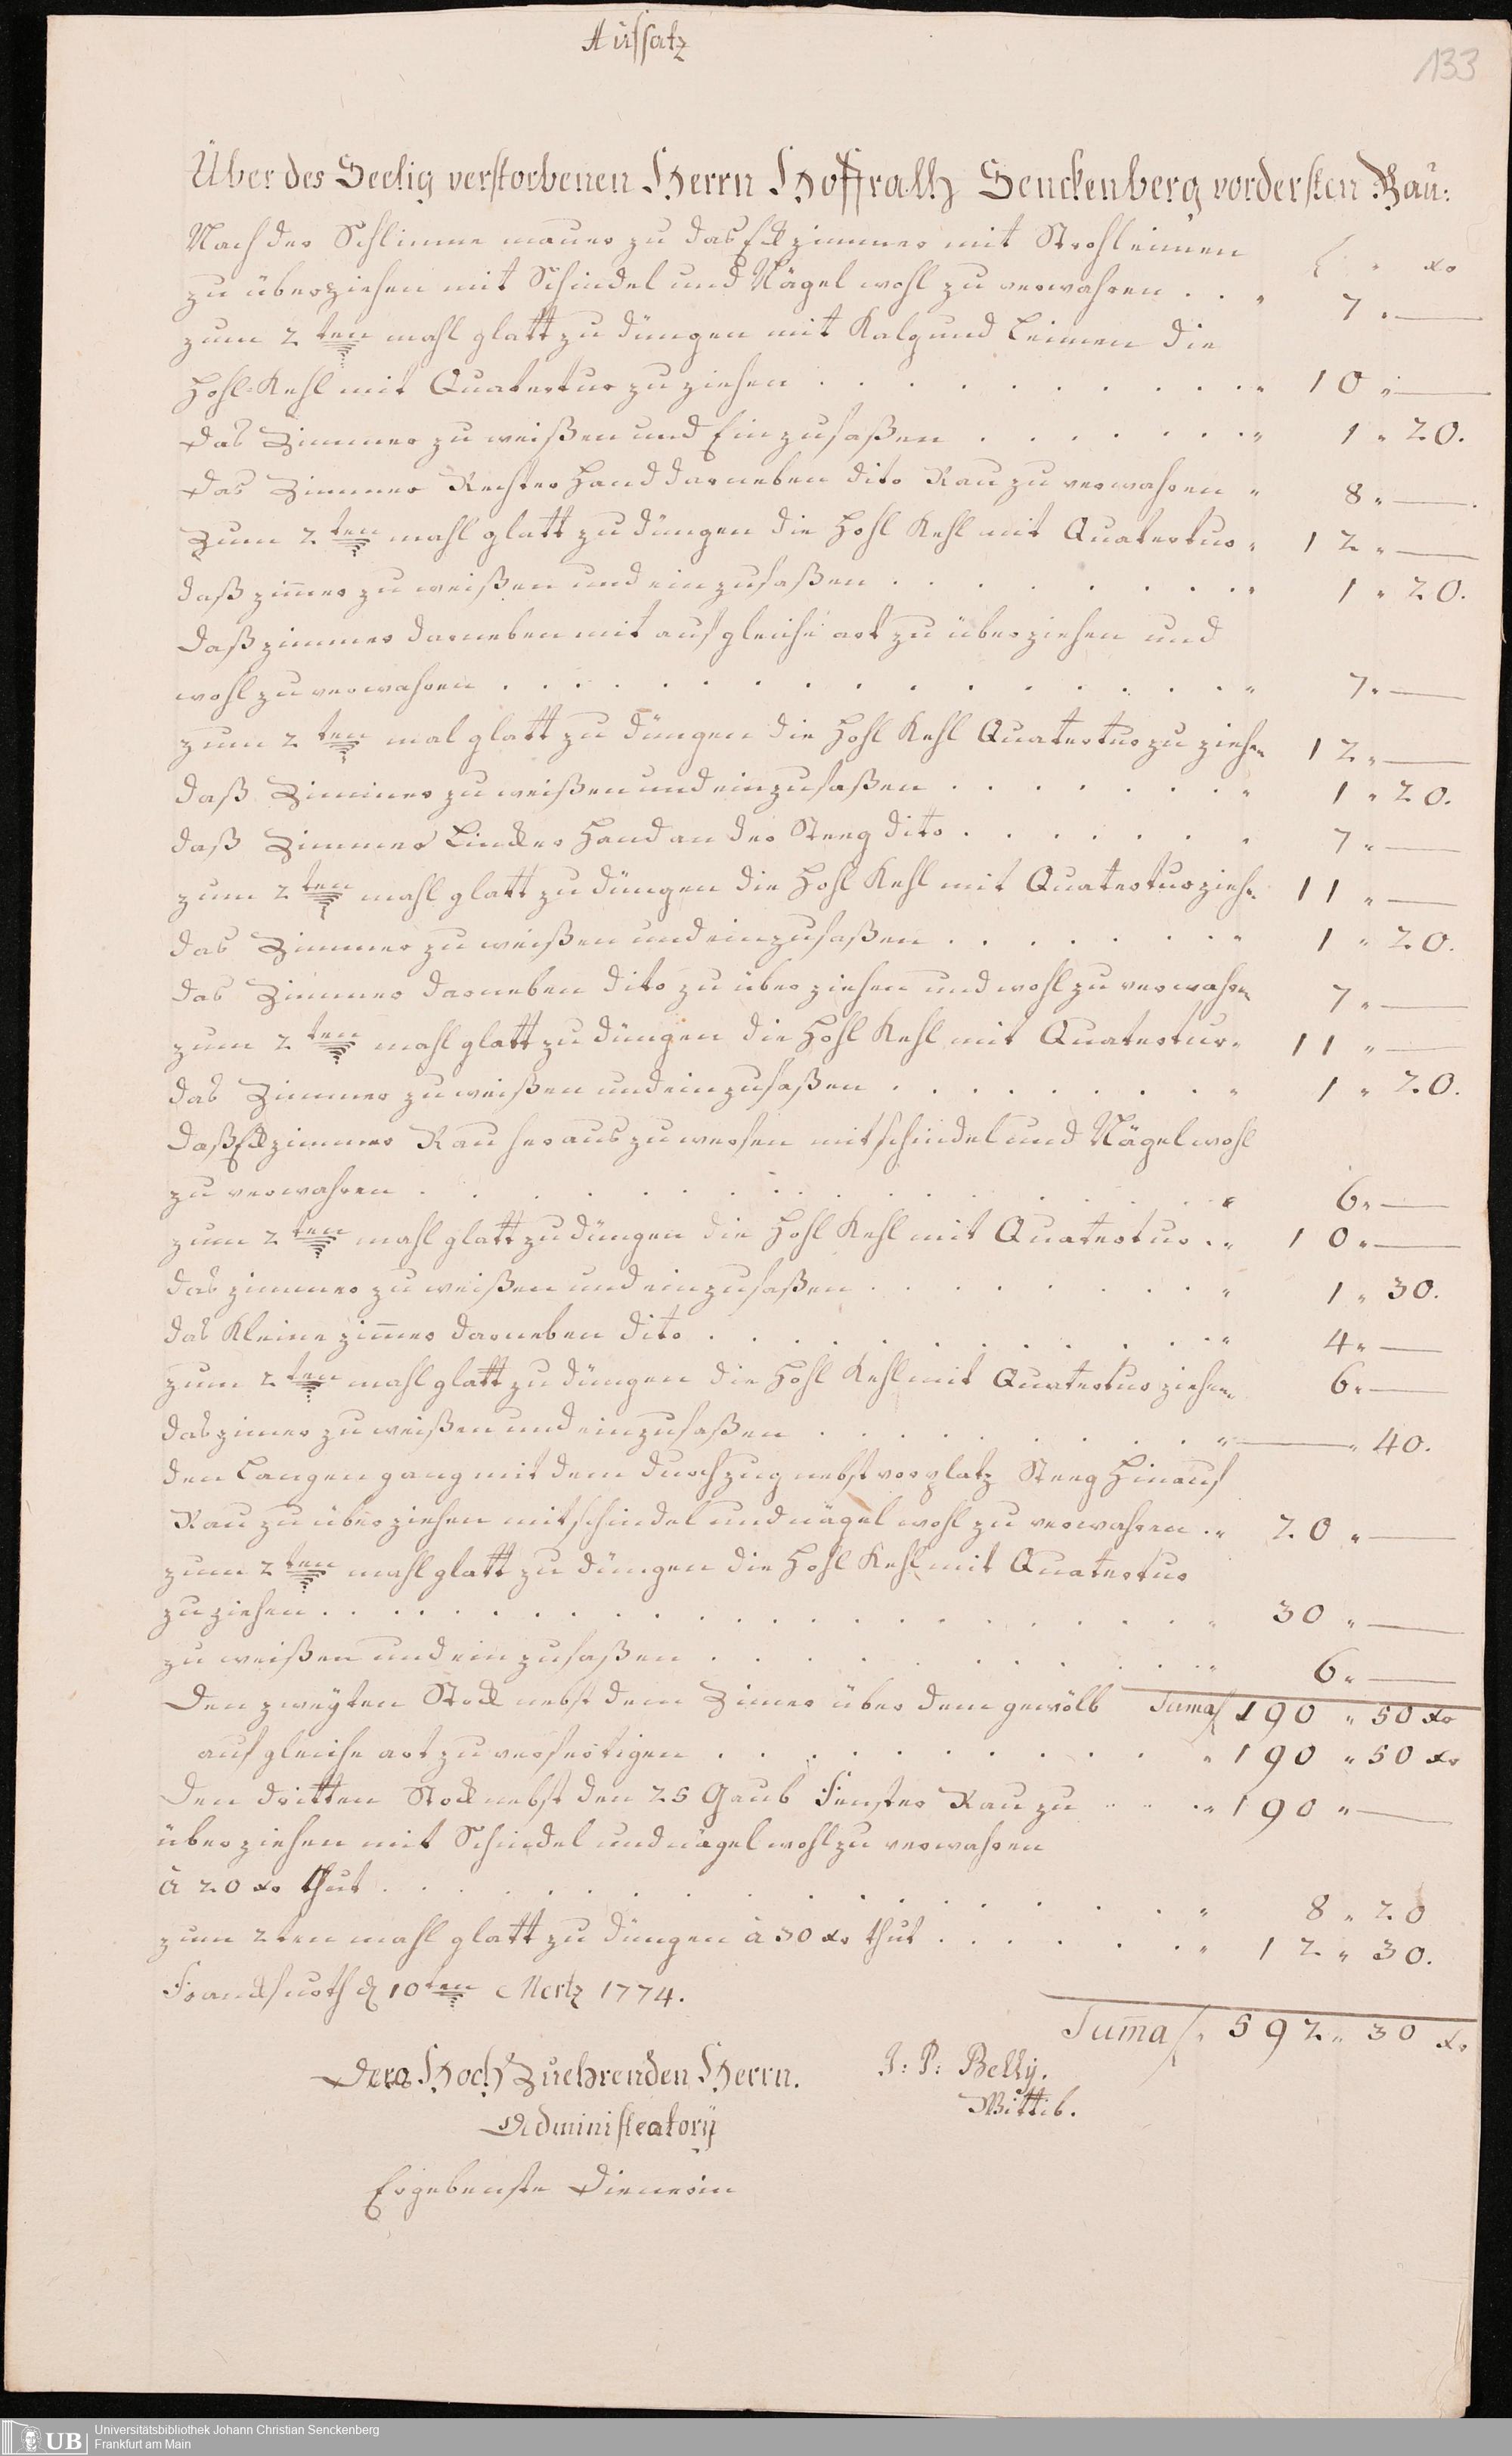 Aufsatz
133
Über des Seelig verstorbenen Herrn Hoffrath Senckenberg vordersten Bau:
Nach der Schlimme mauer zu das Eckzimmer mit Strohleimen
f " xr
zu überziehen mit Schindel und Nägel wohl zu verwahren . . " 7 " —
zum 2ten mahl glatt zu düngen mit Kalg und Leimen die
Hohl-Kehl mit Quatertur zu ziehen . . . " 10 " —
das Zimmer zu weißen und Einzufaßen . . . " 1 " 20.
das Zimmer Rechter Hand darneben dito Rau zu verwahren " 8 " —
Zum 2ten mahl glatt zu düngen die Hohl Kehl mit Quatertur " 12 " —
daß zim̄er zu weißen und einzufaßen . . . " 1 " 20.
daß zimmer darneben mit auf gleiche art zu überziehen und
wohl zu verwahren . . . " 7 " —
zum 2ten mal glatt zu düngen die Hohl Kehl Quatertur zu ziehen 12 " —
daß Zimmer zu weißen und einzufaßen . . . " 1 " 20.
daß Zimmer Lincker Hand an der Steeg dito . . . 7 " —
zum 2ten mahl glatt zu düngen die Hohl Kehl mit Quatertur zieh: 11 " —
das Zimmer zu weißen und einzufaßen . . . " 1 " 20.
das Zimmer darneben dito zu über ziehen und wohl zu verwahren 7 " —
zum 2ten mahl glatt zu düngen die Hohl Kehl mit Quatertur " 11 " —
das Zimmer zu weißen und einzufaßen . . . " 1 " 20.
daß Eckzimmer Rau heraus zu werfen mit schindel und Nägel wohl
zu verwahren . . . " 6 " —
zum 2ten mahl glatt zu düngen die Hohl Kehl mit Quatertur . " 10 " —
das zimmer zu weißen und einzufaßen . . . " 1 " 30.
das Kleine zim̄er darneben dito . . . " 4 " —
zum 2ten mahl glatt zu düngen die Hohl Kehl mit Quatertur ziehen 6 " —
das zimer zu weißen und einzufaßen . . . " — " 40.
den Langen gang mit dem durchzug nebst vorplatz Steeg Hinauf
Rau zu überziehen mit schindel und nägel wohl zu verwahren . " 20 " —
zum 2ten mahl glatt zu düngen die Hohl Kehl mit Quatertur
zu ziehen . . . " 30 " —
zu weißen und einzufaßen . . . " 6 " —
Den zweyten Stock nebst dem Zimer über dem gewölb Suma f 190 " 50 xr
auf gleiche art zu verfertigen . . . " 190 " 50 xr
Den dritten Stock nebst den 25 Gaub Fenster Rau zu . . . " 190 " —
überziehen mit Schindel und nägel wohl zu verwahren
à 20 xr thut . . . " 8 " 20
zum 2ten mahl glatt zu düngen à 30 xr thut . . . " 12 " 30.
Franckfurth d 10ten Mertz 1774.
Sum̄a f " 592 " 30 xr
Dero HochZuehrenden Herrn.
J: P: Belly.
Wittib.
Administratorÿ
Ergebenste Dienerin
UB
Universitätsbibliothek Johann Christian Senckenberg
Frankfurt am Main